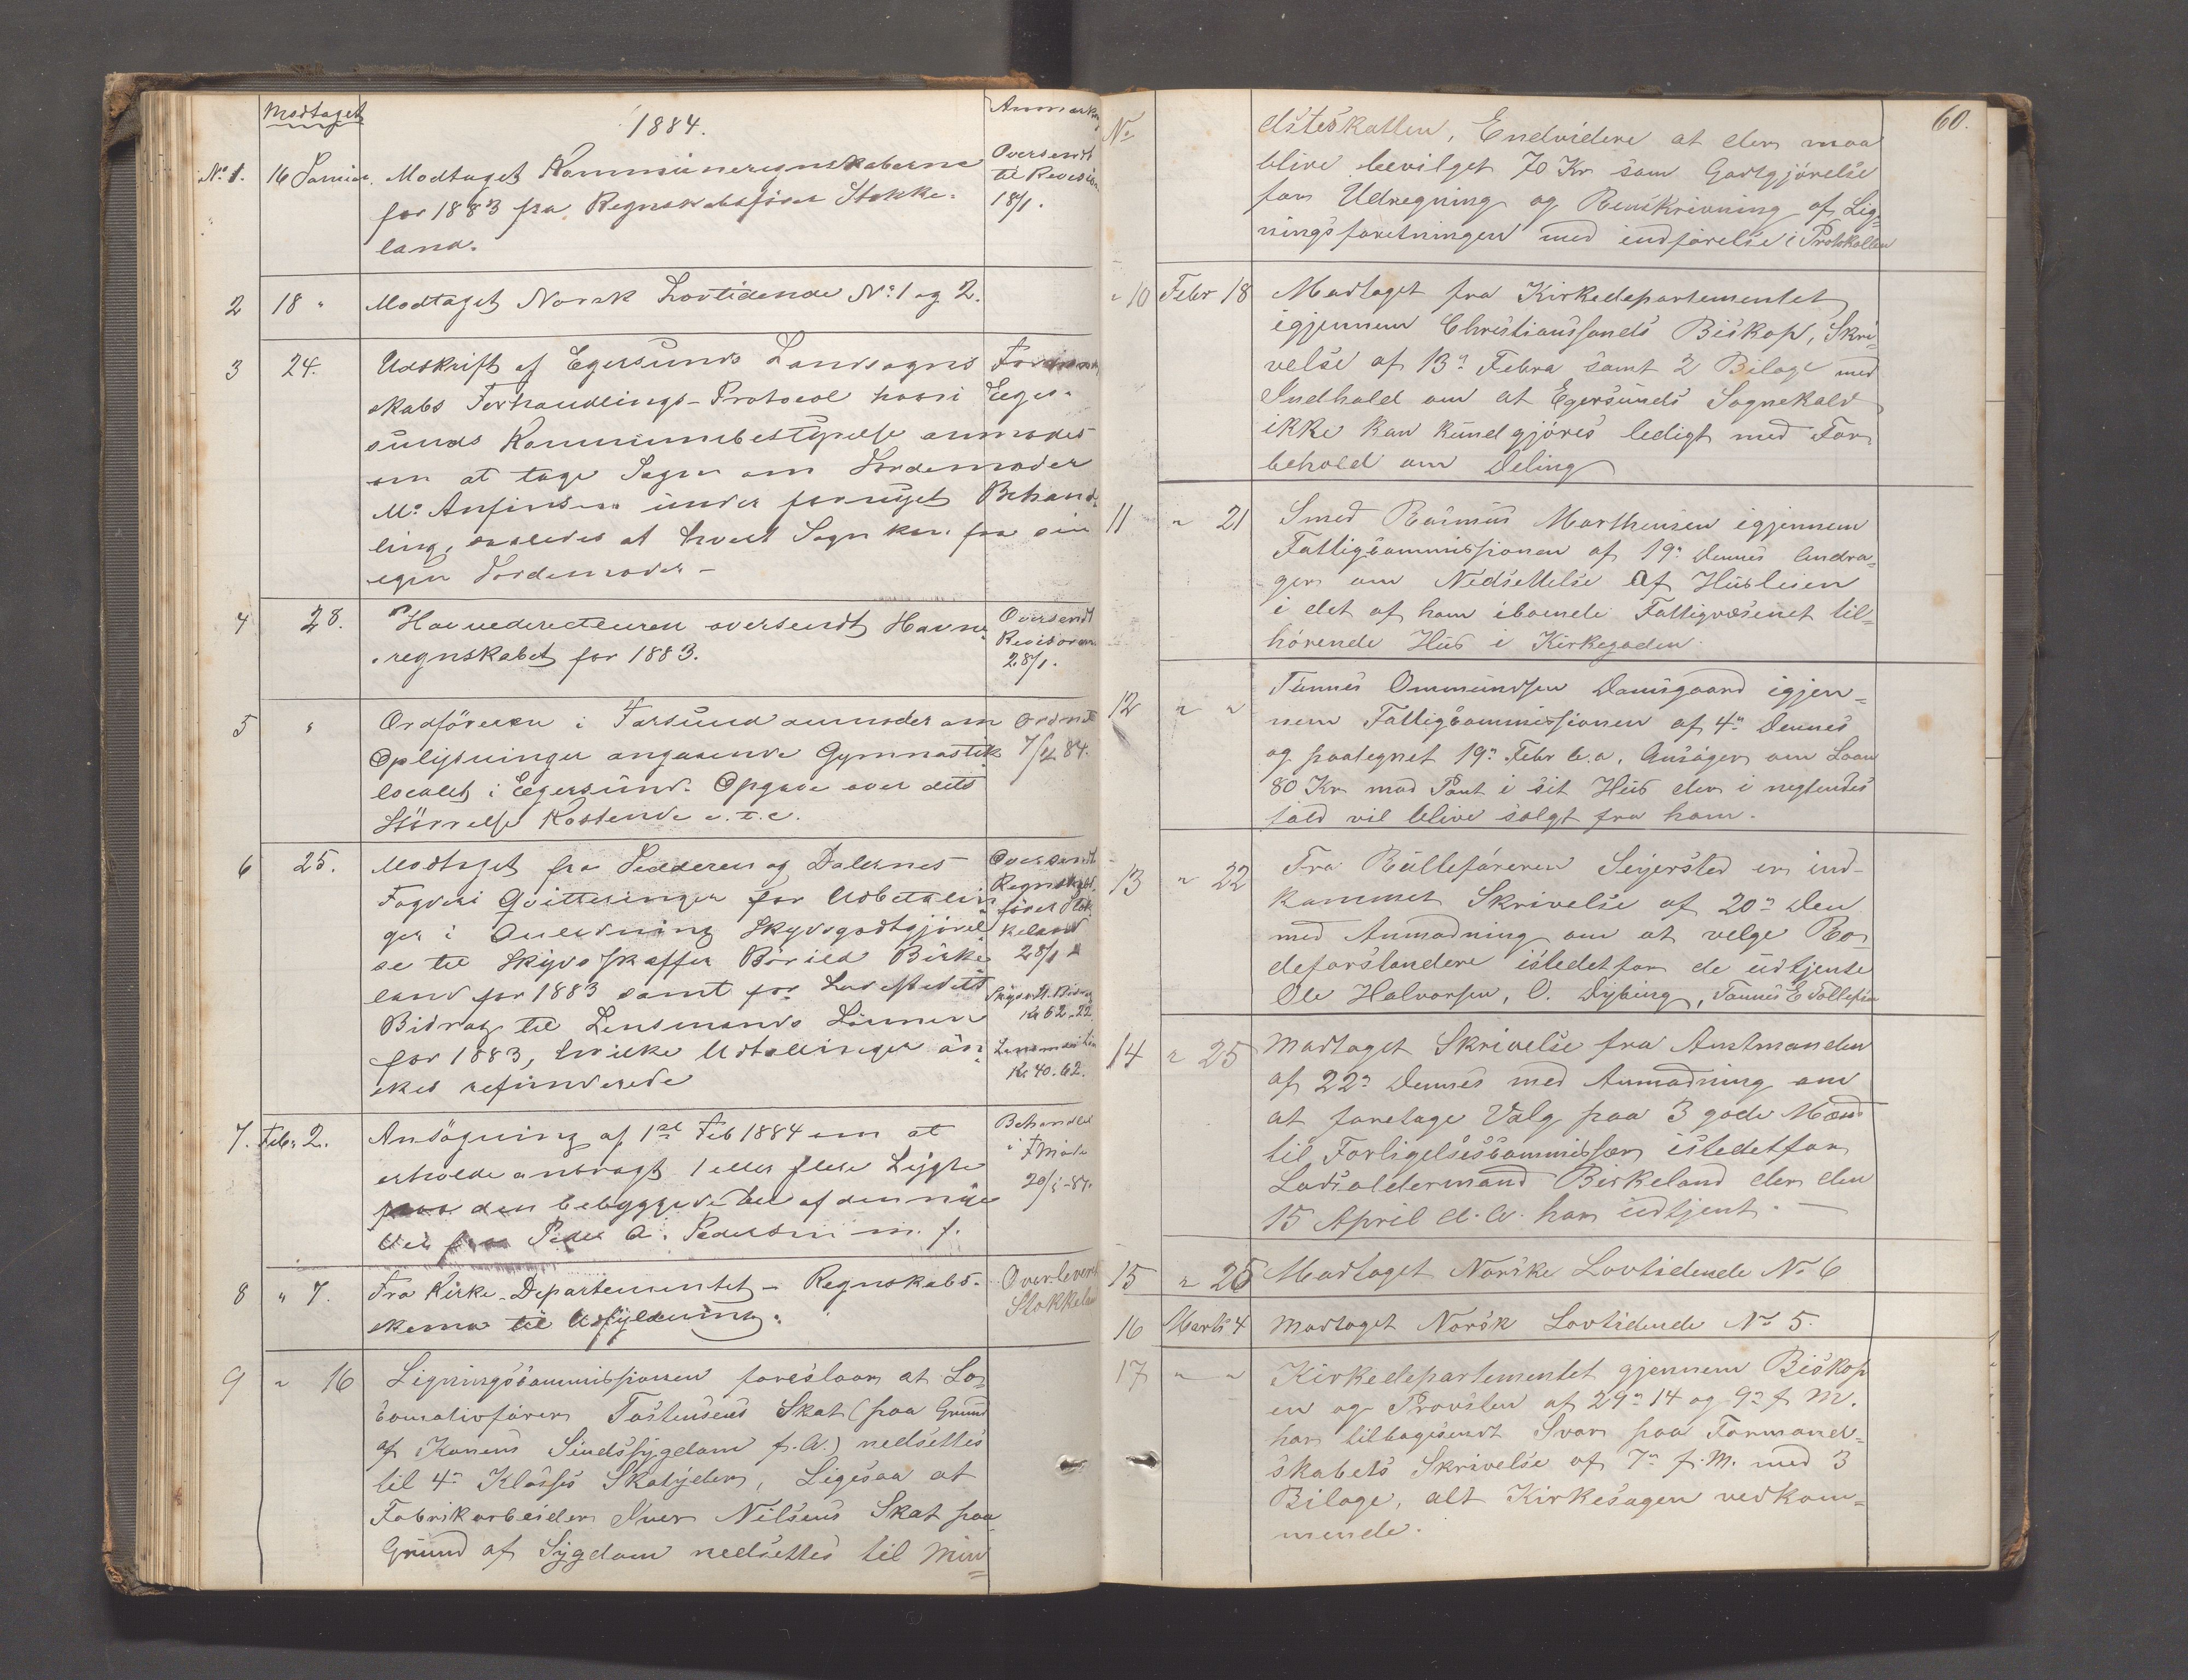 Modtaget
1884.
No 1. 16 Januar. Modtaget Kommuneregnskaberne
for 1883 fra Regnskabsförer Stokke-
land.
Oversendt
til Revision
18/1.
2 18 " Modtaget Norsk Lovtidende No 1 og 2.
3 24. Udskrift af Egersunds Landsogns Formand
skabs Forhandlings-Protocol hvori Eger-
sunds Kommunebestyrelse anmodes
om at tage Sagen om Jordemoder
M. Anfinsen under fornyet Behand-
ling, saaledes at hvert Sogn kan faa sin
egen Jordemoder -
4 28. Havnedirecteuren oversendt Havne-
regnskabet for 1883.
Oversendt
Revisoren
28/1.
5 " Ordföreren i Farsund anmoder om
Oplysninger angaaende Gymnastik
localet i Egersund. Opgave over dets
Störrelse Kostende e.t.c.
6 25. Modtaget fra Jedderen og Dalernes
Fogderi Qvitteringer for Udbetalin
ger i Anledning Skydsgodtgjörel
se til Skydsskaffer Börild Birke
land for 1883 samt for Ladestedets
Bidrag til Lensmands Lönnen
for 1883, hvilke Udtællinger ön
skes refunderede
Oversendt
Regnskabs
förer Stok
keland
28/1
Kr 62.22.
Kr 40.62.
7. Febr 2. Ansögning af 1ste Feb 1884 om at
erholde anbragt 1 eller flere Lygte
den bebyggede Del af den nye
Vei fra Peder A. Pedersen m. f.
Behandlet
i FMöde
8 " 7. Fra Kirke-Departementet - Regnskabs-
skema til Udfyldning.
Overleveret
Stokkeland
9 " 16 Ligningscommissionen foreslaar at Lo-
comotivförer Tostensens Skat (paa Grund
af Konens Sindssygdom f.A.) nedsettes
til 4de Klasses Skatyder, Ligesaa at
Fabrikarbeider Iver Nilsens Skat paa
Grund af Sygdom nedsettes til Min=
60.
No
dsteskatten, Endvidere at der maa
blive bevilget 70 Kr som Godtgjörelse
for Udregning og Renskrivning af Lig=
ningsforetningen med indförelse i Protokollen
" 10 Febr 18 Modtaget fra Kirkedepartementet
igjennem Christianssands Biskop, Skri-
velse af 13de Febra samt 2 Bilage med
Indhold om at Egersunds Sognekald
ikke kan kundgjöres ledigt med For-
behold om Deling
11 " 21 Smed Rasmus Marthensen igjennem
Fattigcommissionen af 19de Dennes andra=
ger om Nedsettelse af Husleien
i det af ham iboende Fattigvæsenet til=
hörende Hus i Kirkegaden.
12 " " Tönnes Ommundsen Damsgaard igjen=
nem Fattigcommissionen af 4de Dennes
og paategnet 19de Febr d.a. Ansöger om Laan
80 Kr mod Pant i sit Hus der i negtendes
fald vil blive solgt fra ham.
13 " 22 Fra Rulleföreren Seyersted er ind-
kommet Skrivelse af 20de Den
med Anmodning om at velge Ro-
deforstandere istedetfor de udtjente
Ole Halvorsen, O. Dybing, Tönnes E Tollefsen
14 " 25 Modtaget Skrivelse fra Amtmanden
af 22de Dennes med Anmodning om
at foretage Valg paa 3 gode Mænd
til Forligelsescommissær istedetfor
Lodsoldermand Birkeland der den
15 April d.A. har udtjent. -
15 " 26 Modtaget Norske Lovtidende No 6
16 Marts 4 Modtaget Norsk Lovtidende No 5.
17 " " Kirkedepartementet gjennem Biskop
en og Provsten af 29de 14 og 9de f. M.
har tilbagesendt Svar paa Formand=
skabets Skrivelse af 7de f.M. med 3
Bilage, alt Kirkesagen vedkom=
mende.